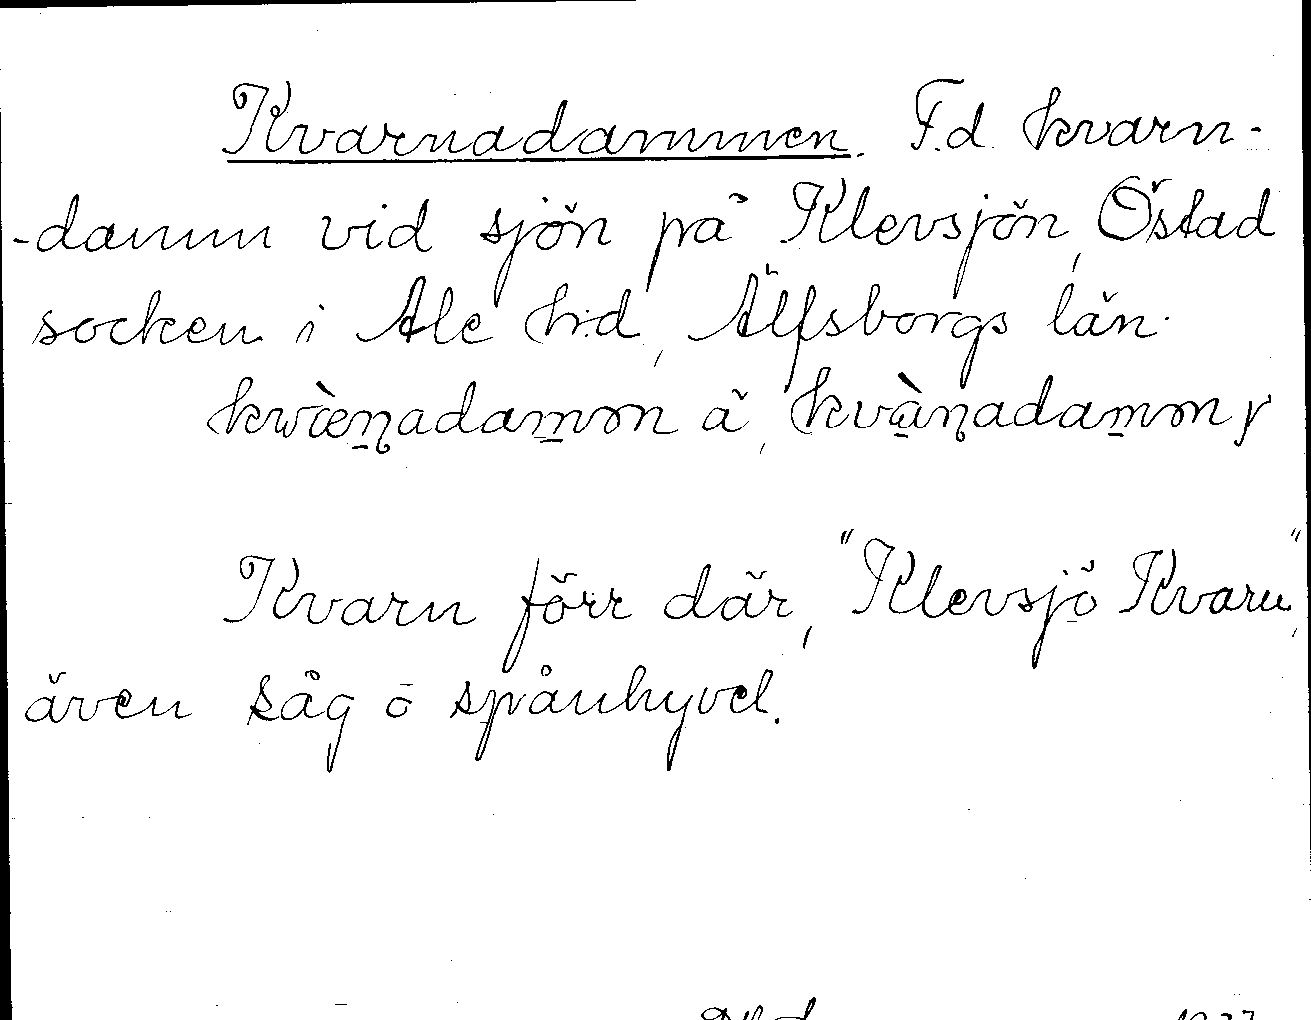 Kvarnadammen. F.d. kvarn-
-damm vid sjön på Klevsjön, Östad
socken i Ale hd, Älfsborgs län.
kwæ̀ṇadamən ä, kvàṇadamən y
Kvarn förr där, "Klevsjö Kvarn",
även såg o spånhyvel.